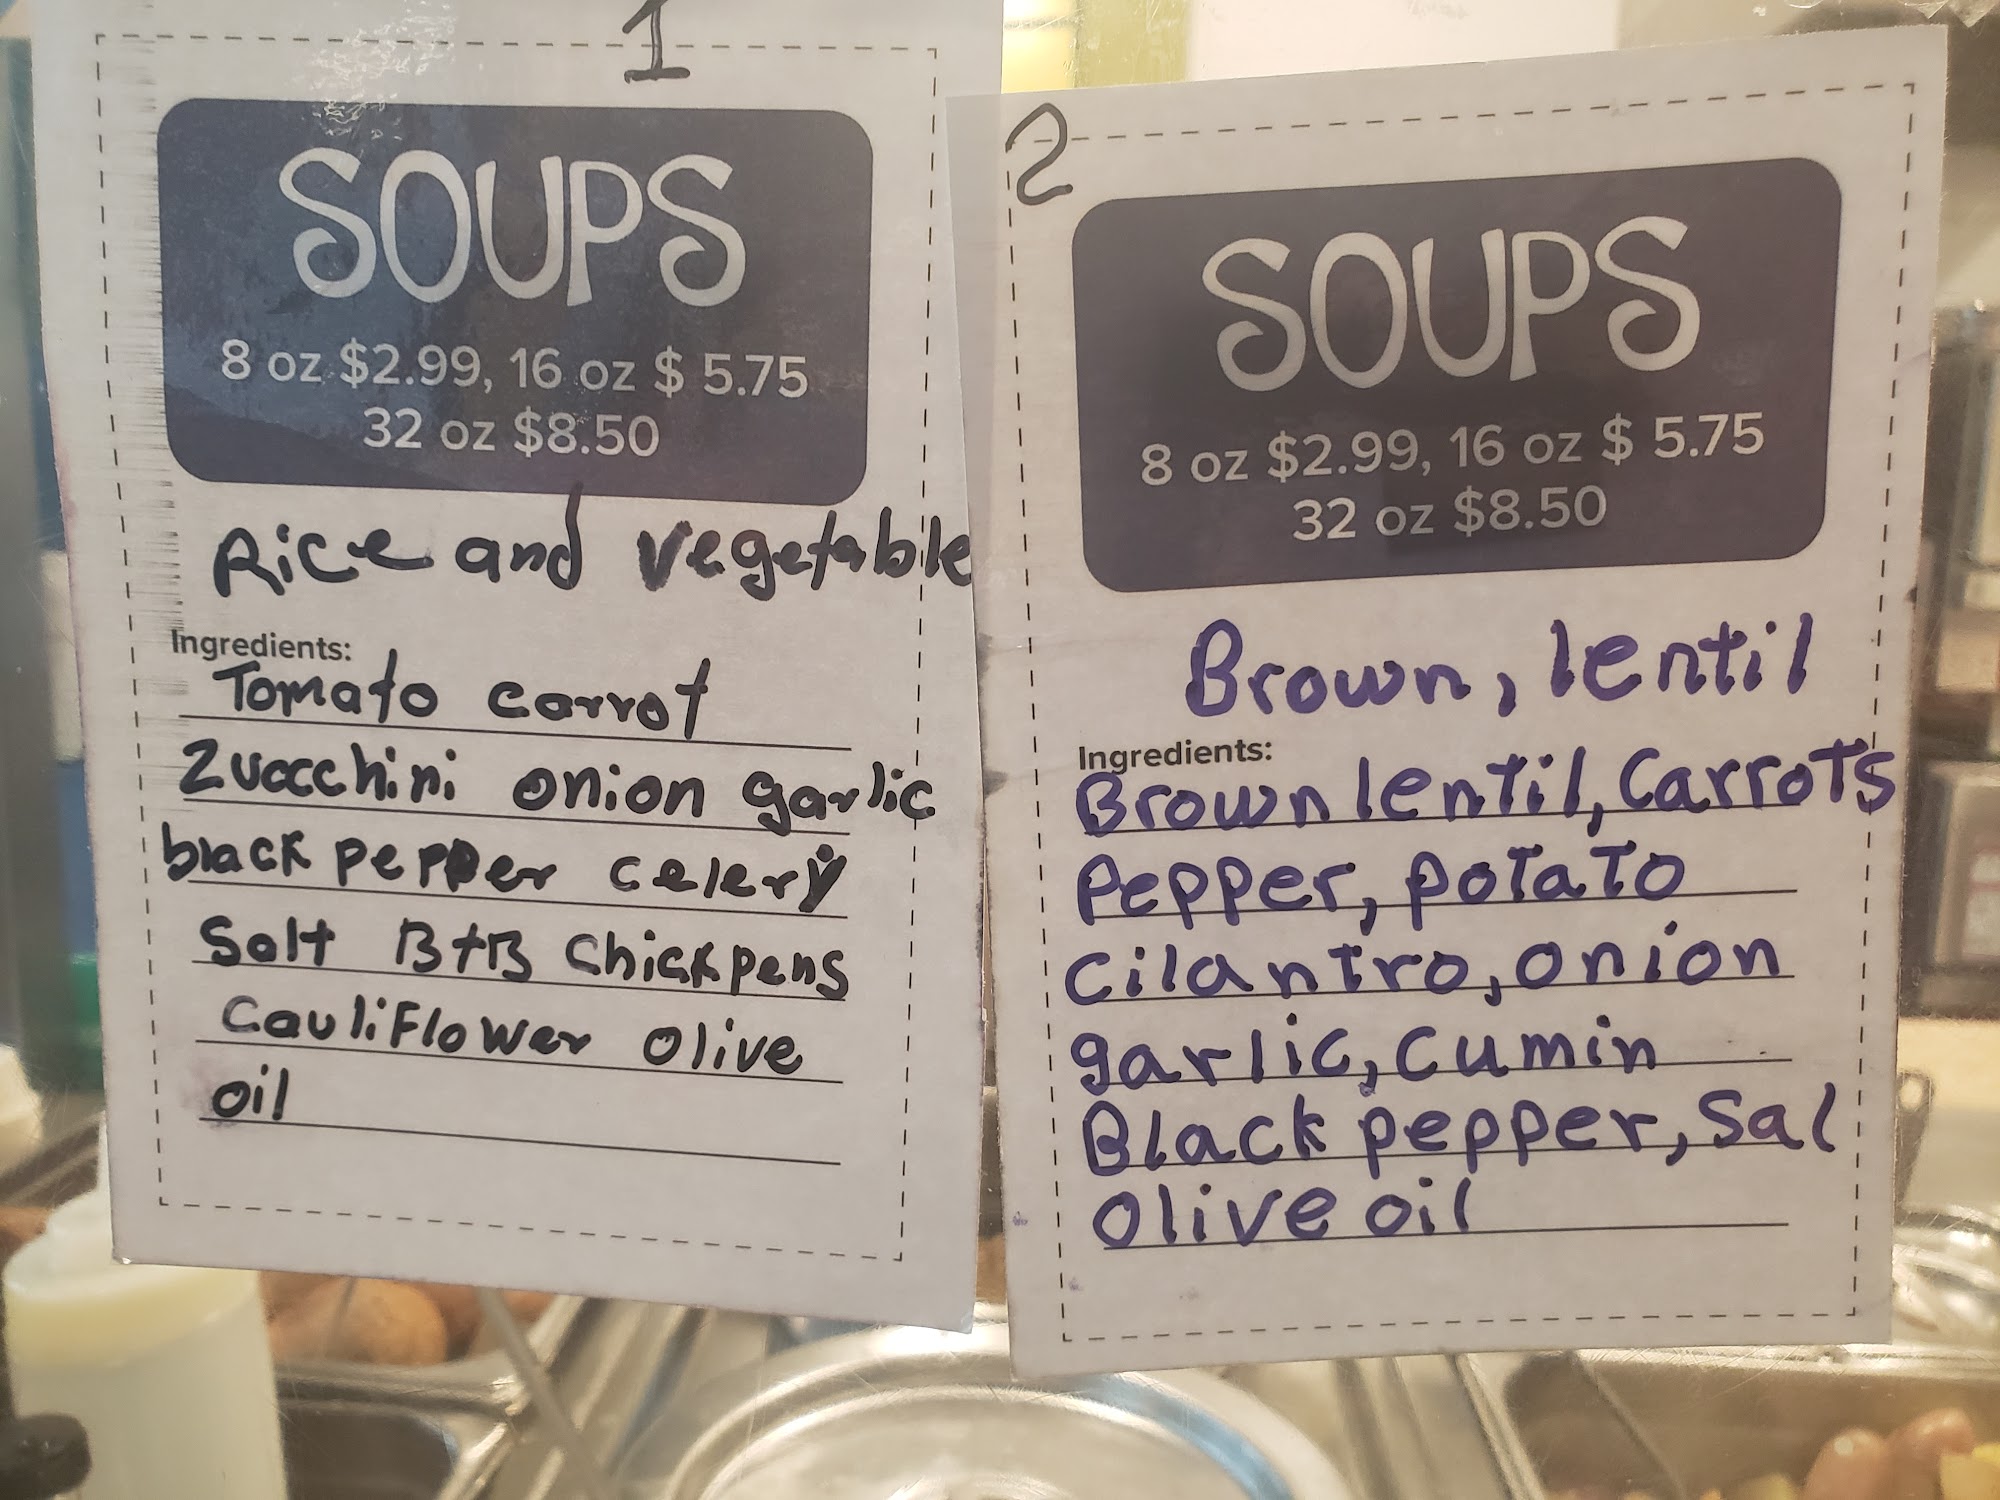 1
SOUPS
8 oz $2.99, 16 oz $ 5.75
32 oz $8.50
Rice and vegetable
Ingredients:
Tomato carrot
Zuocchini onion garlic
black pepper celery
Salt B+B Chickpens
Cauliflower olive
oil
2
SOUPS
8 oz $2.99, 16 oz $ 5.75
32 oz $8.50
Brown, lentil
Ingredients:
Brown lentil, Carrots
Pepper, potato
cilantro, onion
garlic, cumin
Black pepper, Sal
olive oil